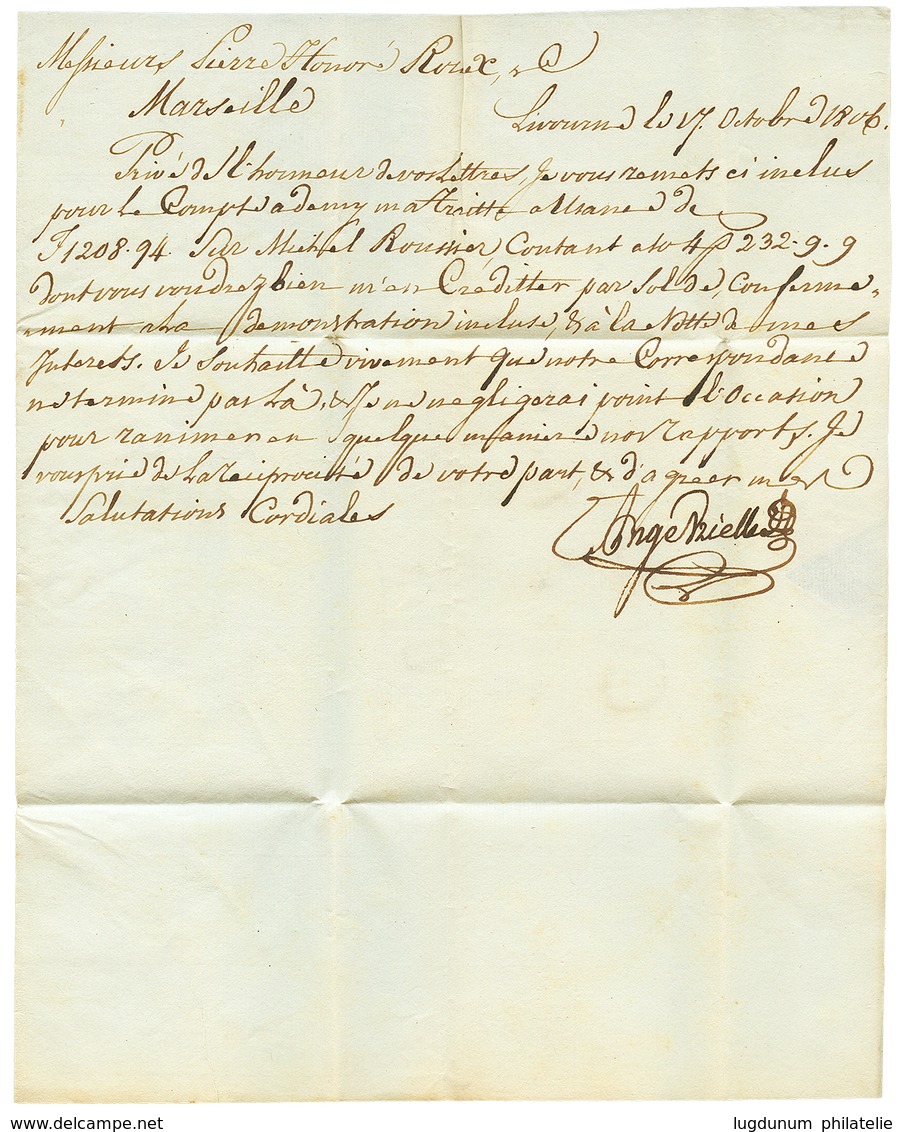 Messieurs Pierre Honoré Roux, & C
Marseille
Livourne le 17. Octobre 1806.
Privé de l'honneur de vos Lettres, Je vous remets ci inclus
pour le Compte a demy ma Traitte a Usance de
F 1208. 94. Sur Michel Roussier, Contant a 232. 9. 9
dont vous voudrez bien m'en Créditter par Solde, Conforme-
-ment a la démonstration incluse, & à la Notte de mes
Interets. Je Souhaitte vivement que notre Correspondance
ne termine pas Là, & Je ne negligerai point l'Occasion
pour ranimer en quelque maniere nos rapports. Je
vous prie de La reciprocité de votre part, & d'agreer mes
Salutations Cordiales
Ange
www.delcampe.net
lugdunum philatelie